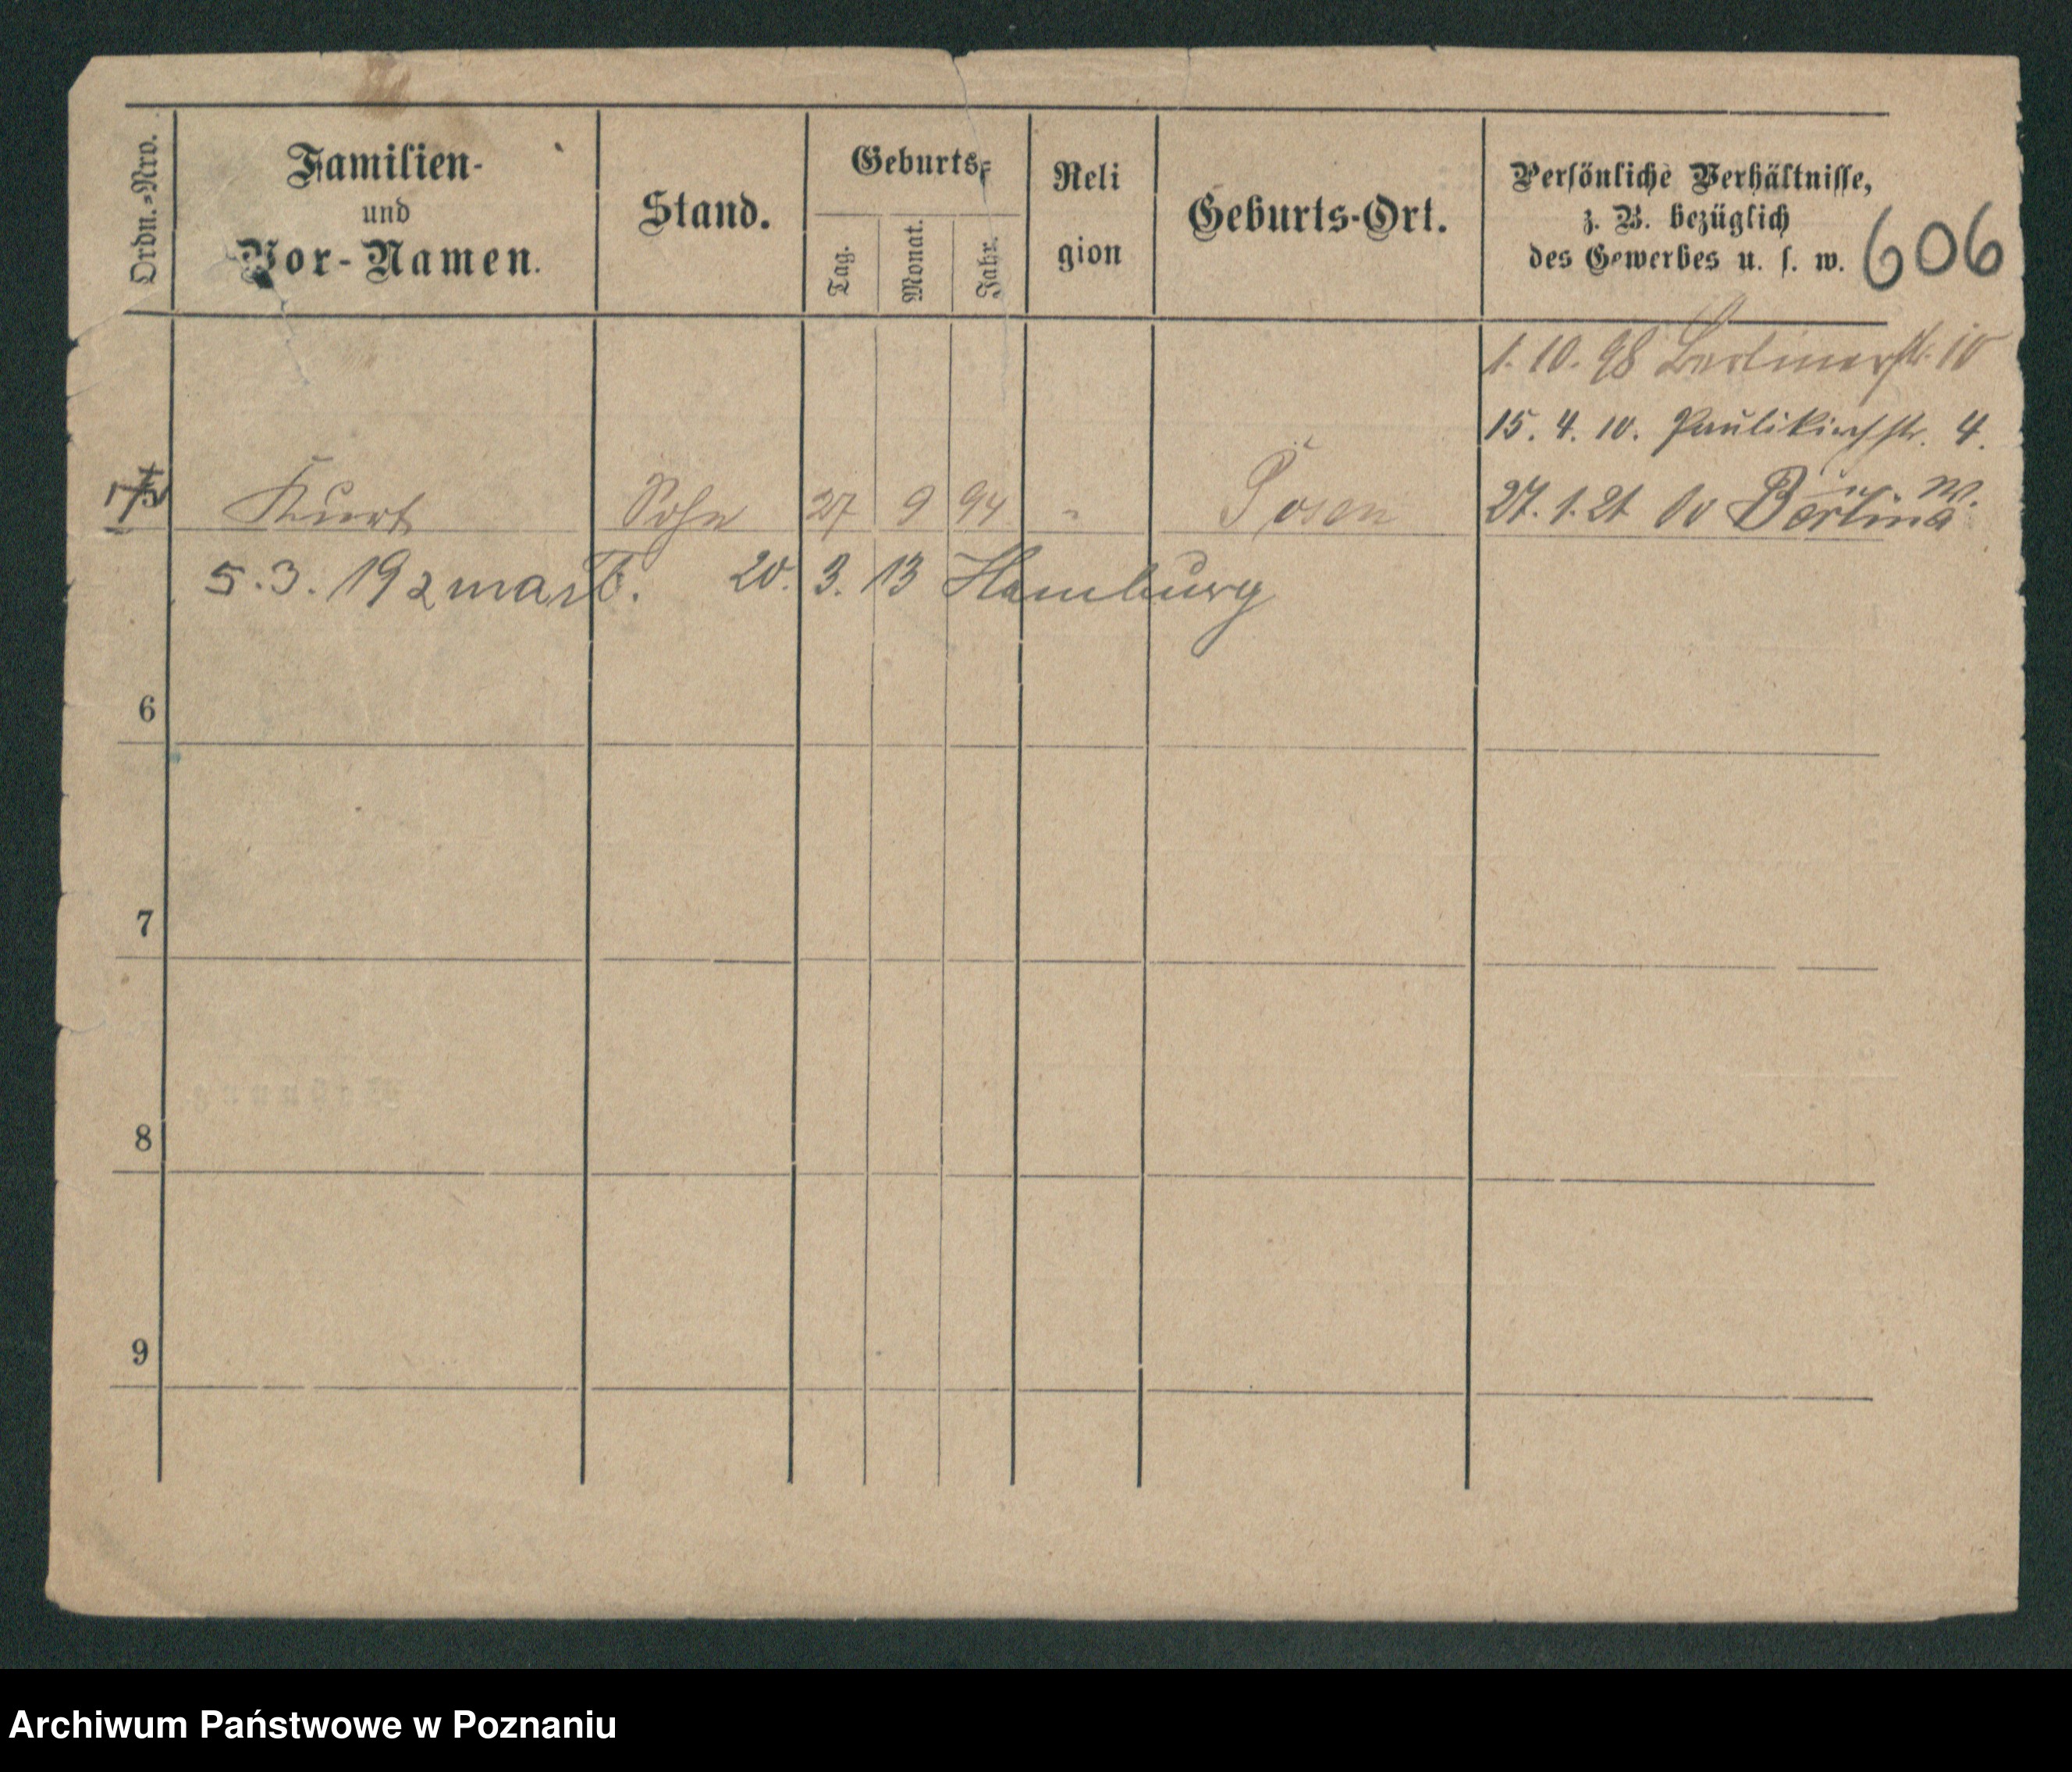 Ordn.-Nro.
Familien-
und
Vor-Namen.
Stand.
Geburts-
Tag.
Monat.
Jahr.
Reli
gion
Geburts-Ort.
Persönliche Verhältnisse,
z. B. bezüglich
des Gewerbes u. s. w.
606
1. 10. 98 Berlinerstr. 10
15. 4. 10. Paulikirchstr. 4.
Kurt Sohn 27 9 94 " Posen 27. 1. 21 Berlin
5. 3. 20. 3. 13 Hamburg
6
7
8
9
Archiwum Państwowe w Poznaniu